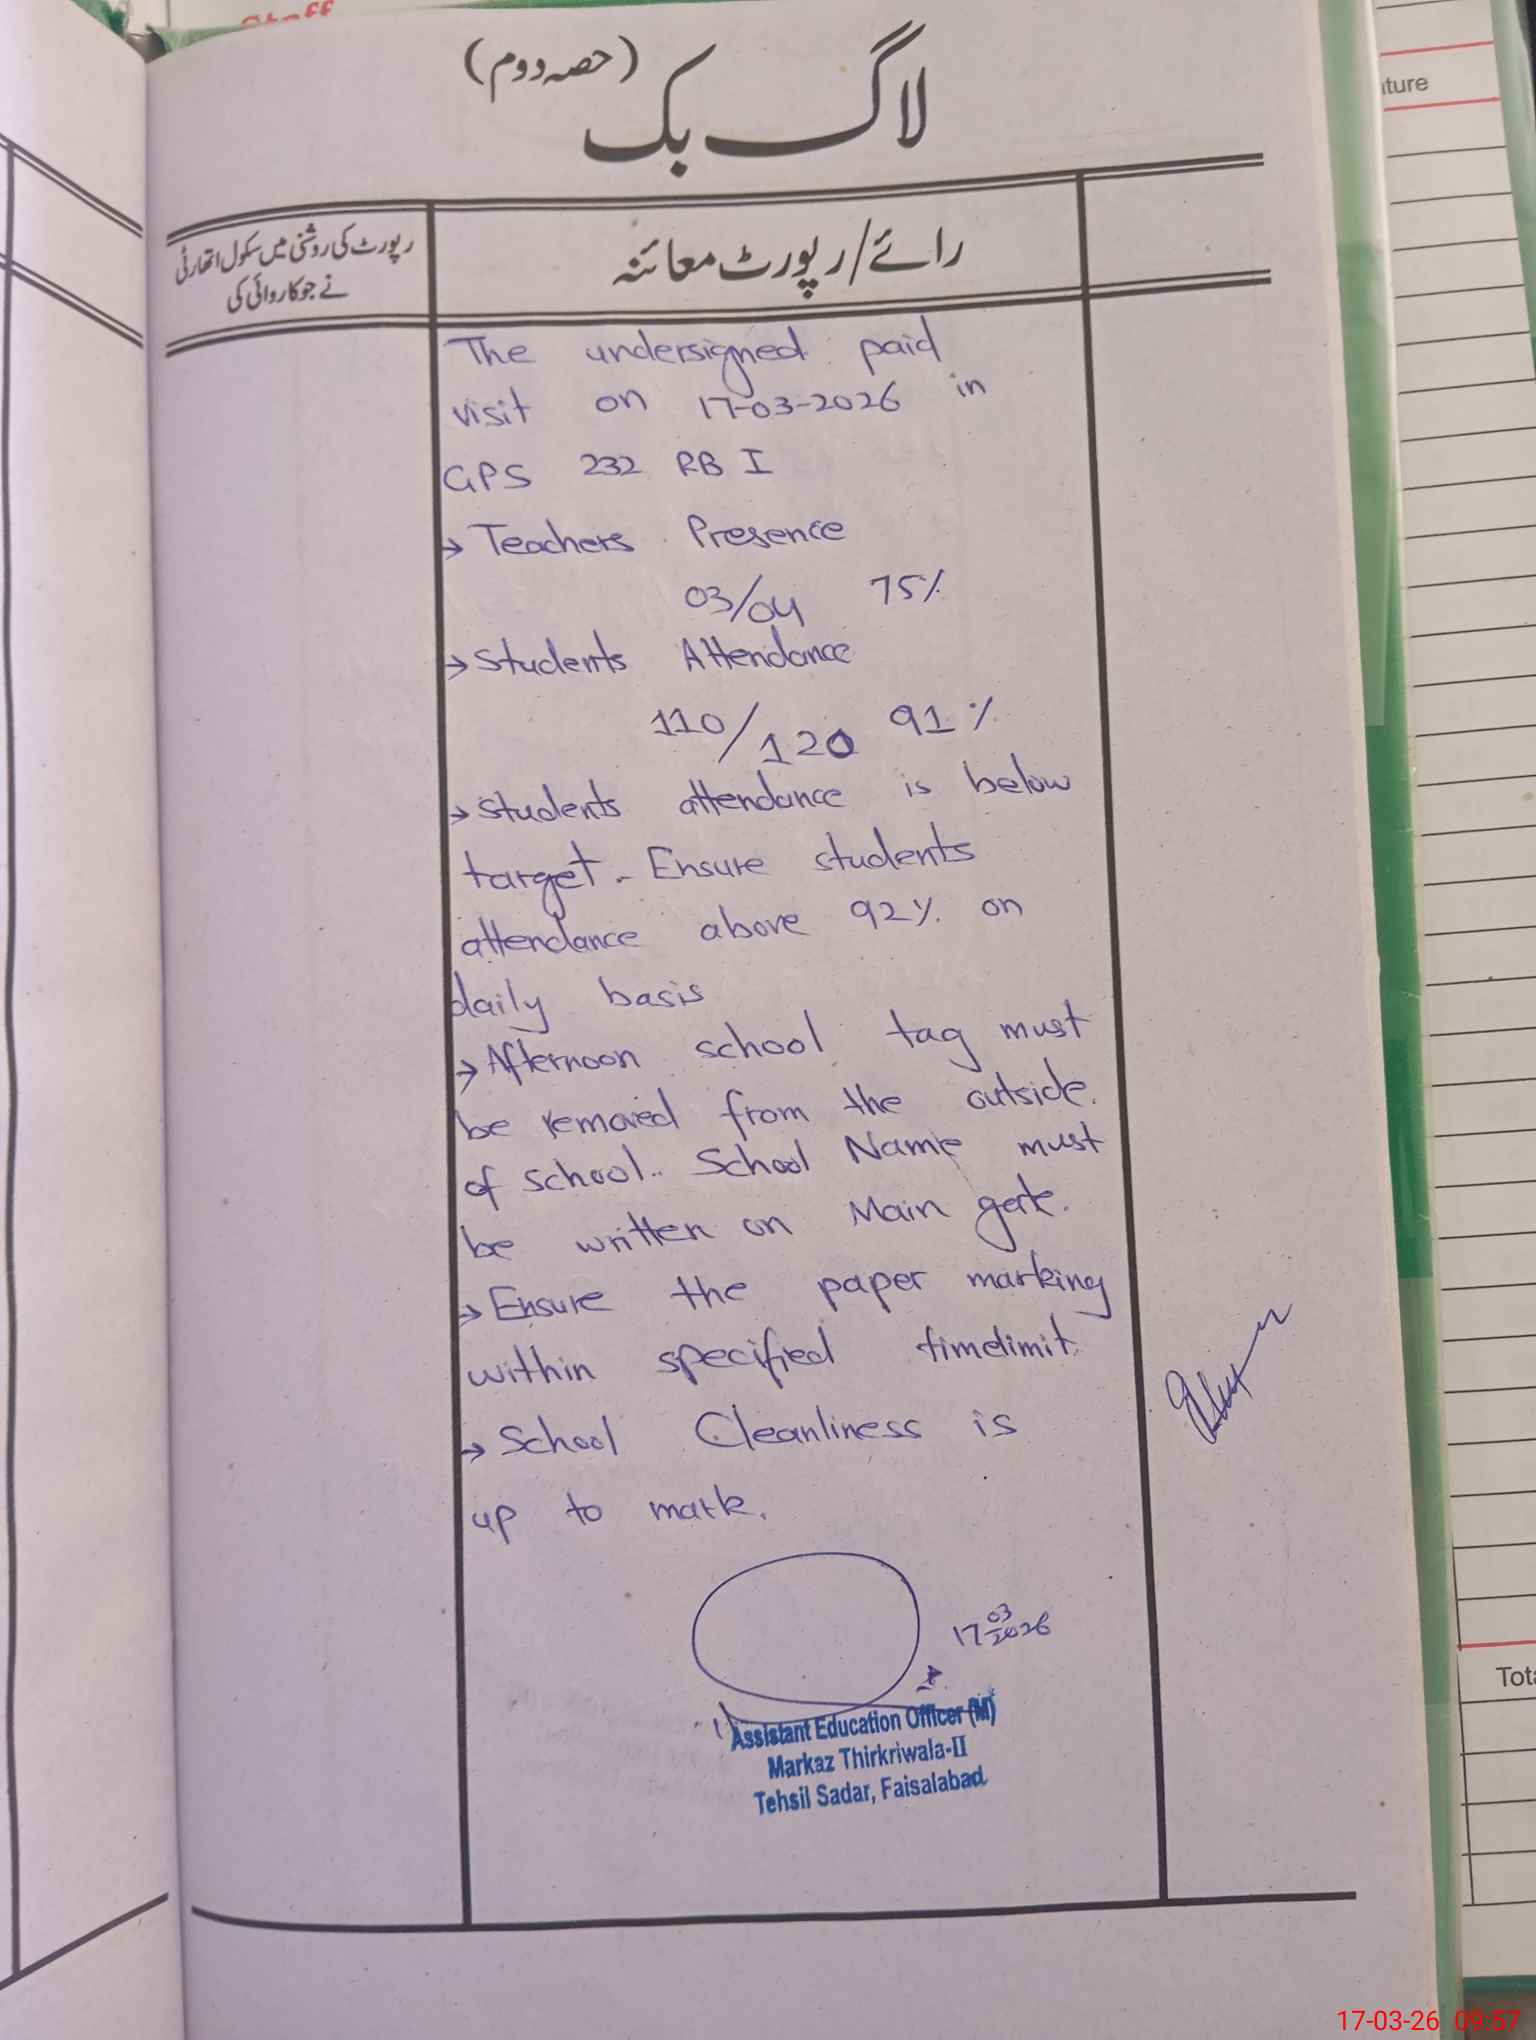 Staff
(حصہ دوم)
لاگ بک
رپورٹ کی روشنی میں سکول اتھارٹی
نے جو کاروائی کی
رائے/رپورٹ معائنہ
The undersigned paid
visit on 17-03-2026 in
GPS 232 RB I
→ Teachers Presence
03/04 75%
→ Students Attendance
110/120 91%
→ Students attendance is below
target. Ensure students
attendance above 92% on
daily basis
→ Afternoon school tag must
be removed from the outside.
of school.. School Name must
be written on Main gate.
→ Ensure the paper marking
within specified timelimit.
→ School Cleanliness is
up to mark.
17 03 2026
Assistant Education Officer (M)
Markaz Thirkriwala-II
Tehsil Sadar, Faisalabad
ture
Tota
17-03-26 09:57